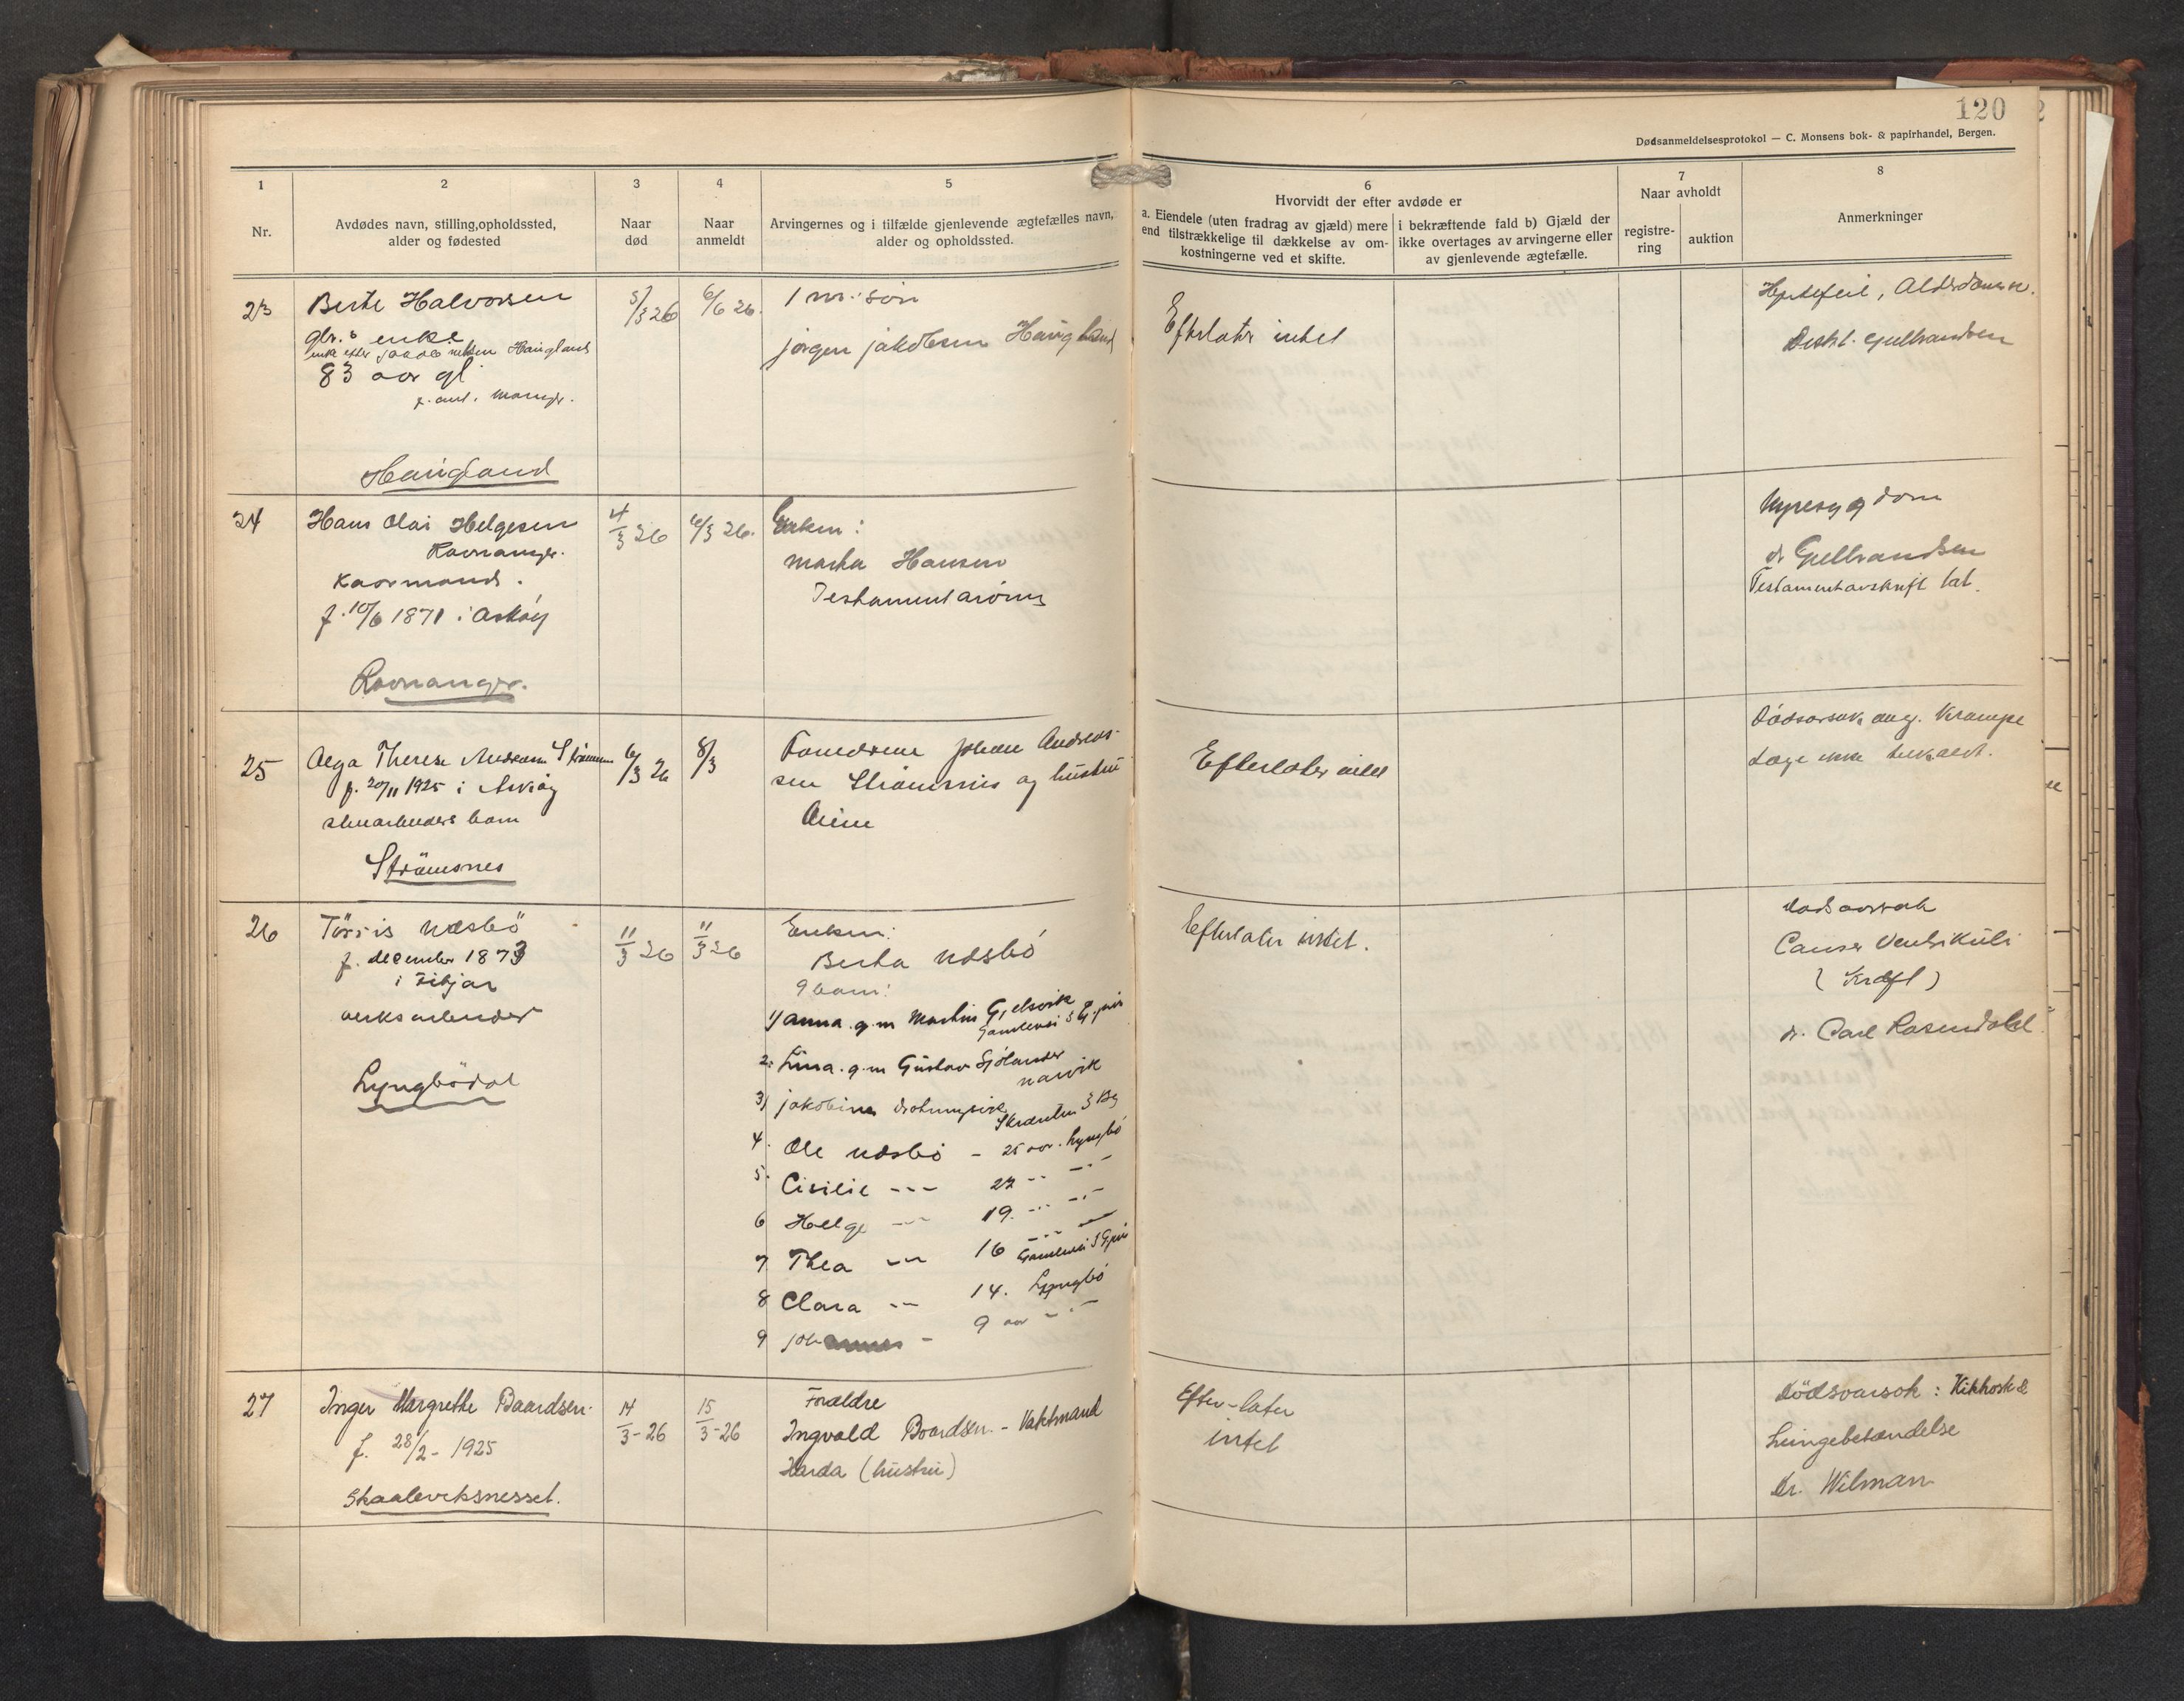 120
Dødsanmeldelsesprotokol — C. Monsens bok- & papirhandel, Bergen.
1
Nr.
2
Avdødes navn, stilling, opholdssted,
alder og fødested
3
Naar
død
4
Naar
anmeldt
5
Arvingernes og i tilfælde gjenlevende ægtefælles navn,
alder og opholdssted.
6
Hvorvidt der efter avdøde er
a. Eiendele (uten fradrag av gjæld) mere
end tilstrækkelige til dækkelse av om-
kostningerne ved et skifte.
i bekræftende fald b) Gjæld der
ikke overtages av arvingerne eller
av gjenlevende ægtefælle.
7
Naar avholdt
registre-
ring
auktion
8
Anmerkninger
23
Berte Halvorsen
enke
enke efter Haugland
83 aar gl
Haugland
5/3 26
6/6 26.
1 m: søn
jørgen jakobsen Haugland
Efterlater intet
Hjertefeil, Alderdomsv.
Distrl. Gulbrandsen
24
Hans Olai Helgesen
Ravnanger.
Kaarmand.
f. 10/6 1871 i Askøy
Ravnanger.
4/3 26
6/3 26.
Enken:
Marta Hansen
Testamentarving
Nyresygdom
dr Gulbrandsen
Testamentavskrift tat.
25
Aega Therese Andersen Strømsnes
f. 20/11 1925 i Askøy
stenarbeiders barn
Strömsnes
6/3 26
8/3
Forældrene Johan Andreas-
sen Strömsnes og hustru
Dødsarsak ang. Krampe
Læge ikke tilkaldt.
Efterlater intet
26
Törris Næsbö
f. december 1873
i Fitjar
verksarbeider
Lyngbödal
11/3 26
11/3 26
Enken:
Berta Næsbö
9 barn:
1) Anna. g. m Martin Gjelsvik
2. Lina. g. m Gustav Sjölander
Narvik
3) jakobine
4. Ole Næsbö - 25 aar. Lyngbö
5. Cisilie --- 22 -- -.-
6 Helge --- 19. --- -.-
7 Thea --- 16
8 Clara -- 14. Lyngbö
9 Johannes - 9 aar -.-
Efterlater intet.
Dødsaarsak
Cancer Ventriküli
(Kræft)
dr. Carl Rosendahl
27
Inger Margrethe Baardsen.
f. 28/2 - 1925
Skaaleviksnesset.
14/3 - 26
15/3 - 26
Forældre
Ingvald Baardsen. - Vaktmand
Harda (hustru)
Efter-later
intet
Dödsaarsak: Kikhoste
Lungebetændelse
Dr. Wilman